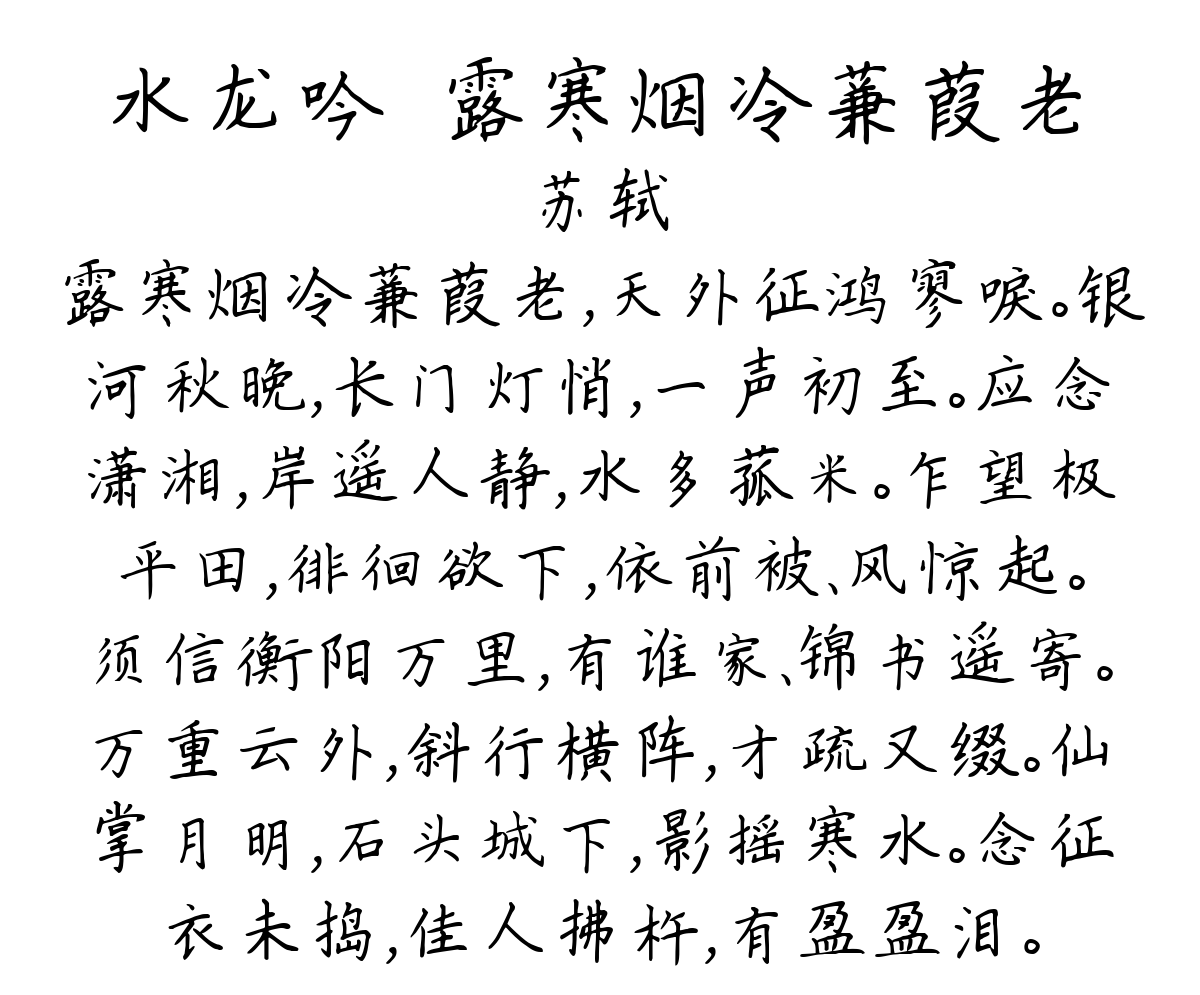 水龙吟 露寒烟冷蒹葭老
苏轼
露寒烟冷蒹葭老,天外征鸿寥唳。银
河秋晚,长门灯悄,一声初至。应念
潇湘,岸遥人静,水多菰米。乍望极
平田,徘徊欲下,依前被、风惊起。
须信衡阳万里,有谁家、锦书遥寄。
万重云外,斜行横阵,才疏又缀。仙
掌月明,石头城下,影摇寒水。念征
衣未捣,佳人拂杵,有盈盈泪。